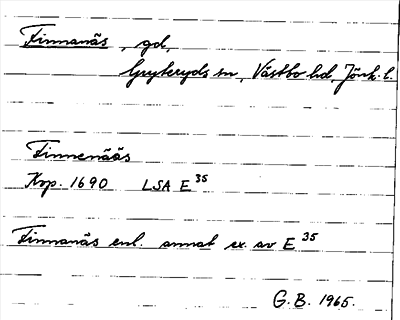 Finnanäs, gd,
Gryteryds sn, Västbo hd, Jönk. l.
Finnenääs
Kop. 1690 LSA E 35
Finnanäs enl. annat ex. av E 35
G.B. 1965.